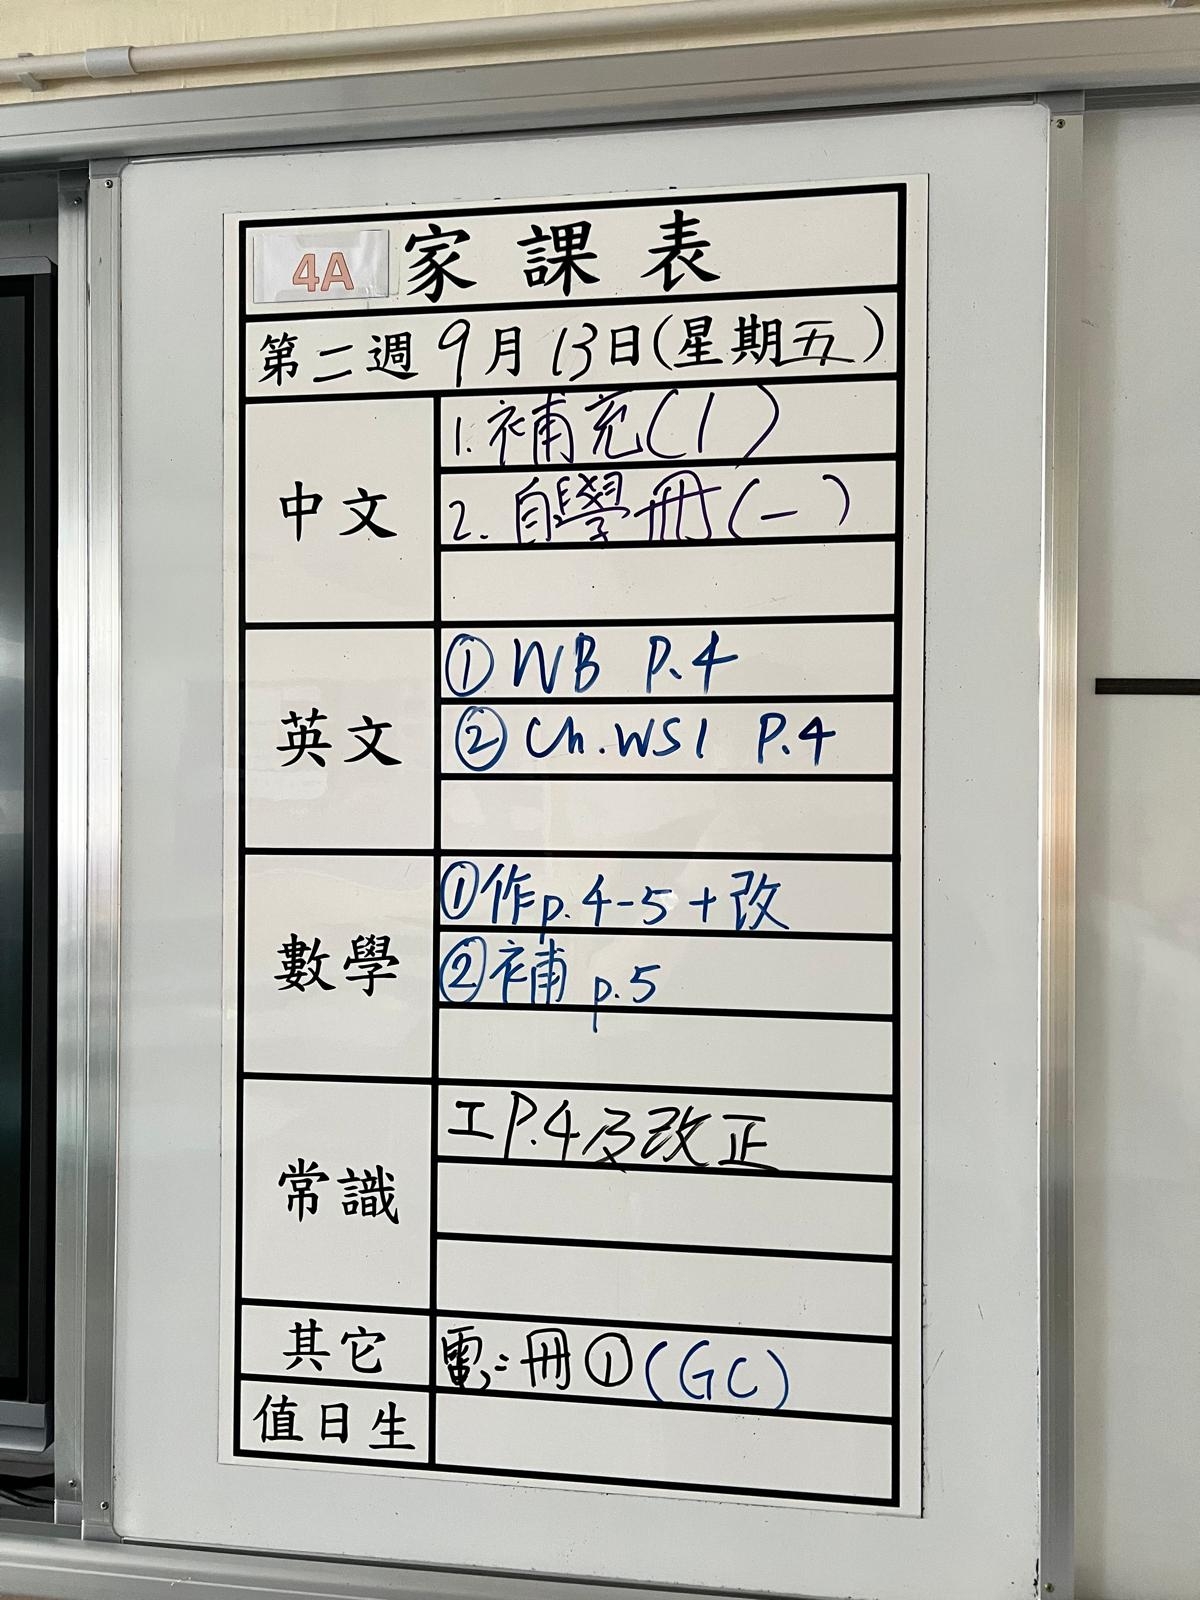 4A 家課表
第二週 9月13日(星期五)
中文
1. 補充(1)
2. 自學冊(一)
英文
① WB P.4
② Ch. WS1 P.4
數學
①作p.4-5+改
②補 p.5
常識
工P.4及改正
其它
電:冊①(GC)
值日生